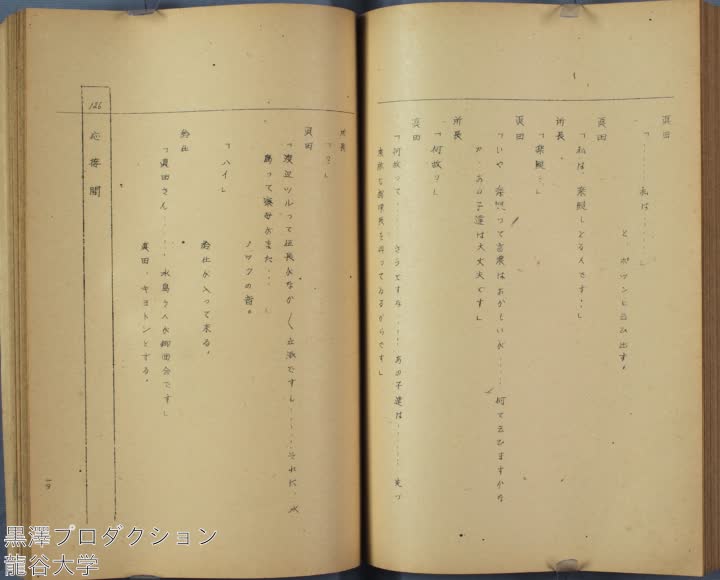 真田
「……私は……」
と、ポツンと云ひ出す。
真田
「私は、楽観しとるんです……」
所長
「楽観…」
真田
「いや、楽観って言葉はおかしいが……何て云ひますかな
が、あの子達は大丈夫です」
所長
「何故?」
真田
「何故って……さうですな……あの子達は……実に
立派な寮母を持ってゐるからです」
所長
「?」
真田
「渡辺ツルって組長がなか〱立派ですし……それに、水
島って寮母がまた…
ノックの音。
「ハイ」
給仕が入って来る。
給仕
「真田さん……水島さんが御面会です」
真田、キョトンとする。
126 応接間
19
黒澤プロダクション
龍谷大学